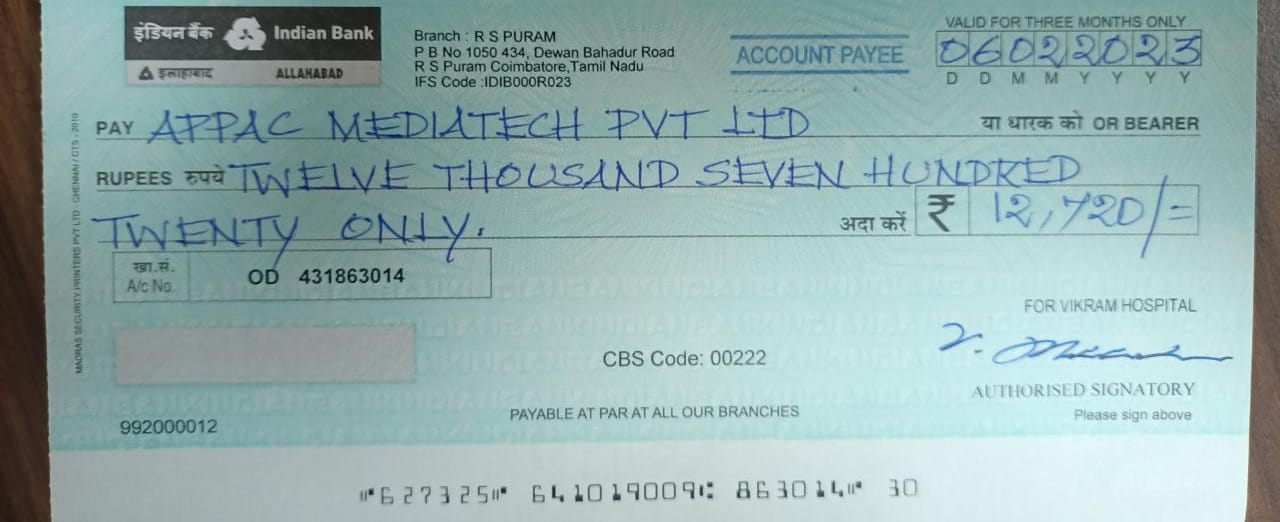 इंडियन बैंक Indian Bank
इलाहाबाद ALLAHABAD
Branch : R S PURAM
P B No 1050 434, Dewan Bahadur Road
R S Puram Coimbatore,Tamil Nadu
IFS Code :IDIB000R023
ACCOUNT PAYEE
VALID FOR THREE MONTHS ONLY
06022023
D D M M Y Y Y Y
PAY APPAC MEDIATECH PVT LTD या धारक को OR BEARER
RUPEES रुपये TWELVE THOUSAND SEVEN HUNDRED
TWENTY ONLY. अदा करें ₹ 12,720/=
खा.सं.
A/c No. OD 431863014
MADRAS SECURITY PRINTERS PVT LTD - CHENNAI / CTS - 2010
FOR VIKRAM HOSPITAL
CBS Code: 00222
AUTHORISED SIGNATORY
PAYABLE AT PAR AT ALL OUR BRANCHES
Please sign above
992000012
⑈627325⑈ 641019009⑆ 863014⑈ 30